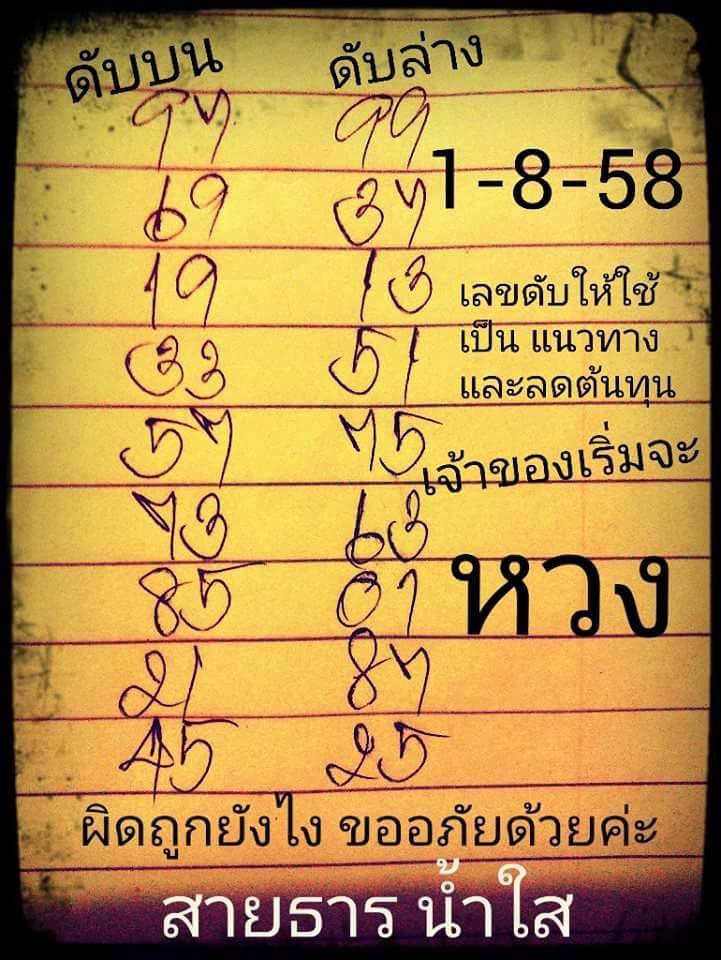 ดับบน ดับล่าง
97 99
1-8-58
69 37
19 13
เลขดับให้ใช้
เป็น แนวทาง
และลดต้นทุน
33 51
57 75
เจ้าของเริ่มจะ
หวง
73 63
85 01
21 87
45 25
ผิดถูกยังไง ขออภัยด้วยค่ะ
สายธาร น้ำใส